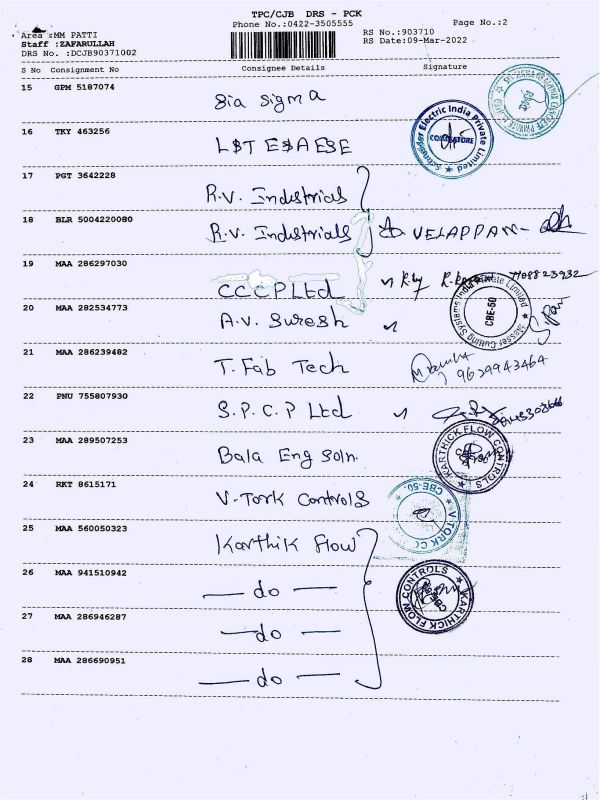 TPC/CJB DRS - PCK
Phone No.:0422-3505555
Page No.:2
Area :MM PATTI
Staff :ZAFARULLAH
DRS No. :DCJB90371002
RS No.:903710
RS Date:09-Mar-2022
S No Consignment No Consignee Details Signature
15 GPM 5187074 Sia Sigma
16 TKY 463256 L&T ESAESE
Schnaider Electric India Private Limited
COIMBATORE
17 PGT 3642228 R.V. Industrials
18 BLR 5004220080 R.V. Industrials VELAPPAN
19 MAA 286297030 CCCP Ltd 7708823932
20 MAA 282534773 A.V. Suresh
Messer Cutting Systems India Private Limited
CBE-50
21 MAA 286239482 T. Fab Tech 9629943464
22 PNU 755807930 S.P.C.P Ltd
23 MAA 289507253 Bala Eng Soln.
KARTHICK FLOW CONTROLS
24 RKT 8615171 V-Tork Controls
V-TORK CO
CBE-50.
25 MAA 560050323 Karthik Flow
26 MAA 941510942 — do —
KARTHICK FLOW CONTROLS
27 MAA 286946287 — do —
28 MAA 286690951 — do —